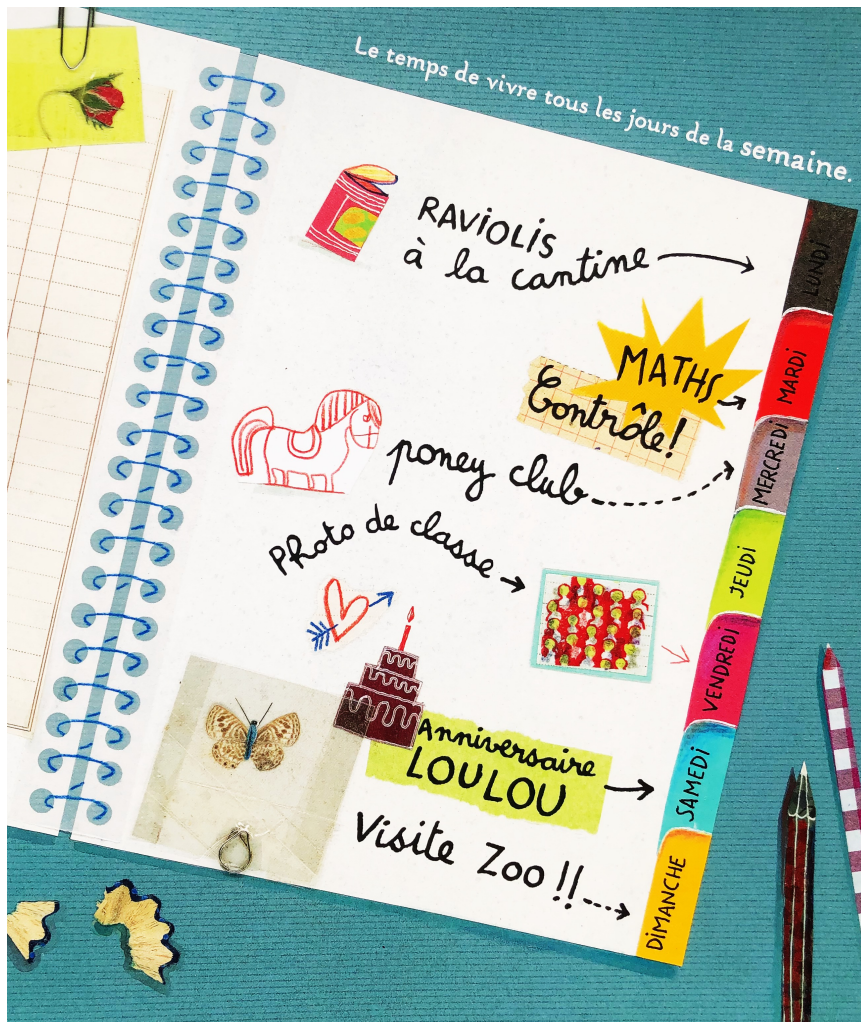 Le temps de vivre tous les jours de la semaine.
RAViOLiS
à la cantine
LUNDi
MATHS
Contrôle!
MARDi
poney club
MERCREDi
PHoto de classe
JEUDi
VENDREDi
Anniversaire
LOULOU
SAMEDi
Visite Zoo !!
DiMANCHE